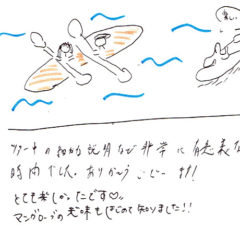 ツアー中の 説明など非常に有意義な
時間でした。ありがとうございます!
とても楽しかったです♡。
マングローブの意味もはじめて知りました!!